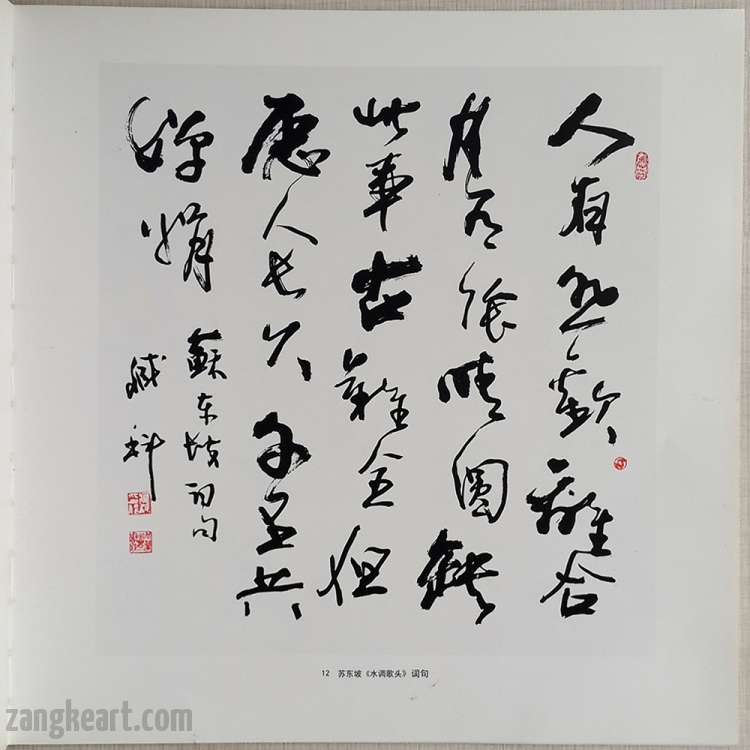 人有悲歡離合
月有陰晴圓缺
此事古難全但
愿人長久千里共
嬋娟
蘇東坡詞句
臧科
12 苏东坡《水调歌头》词句
zangkeart.com